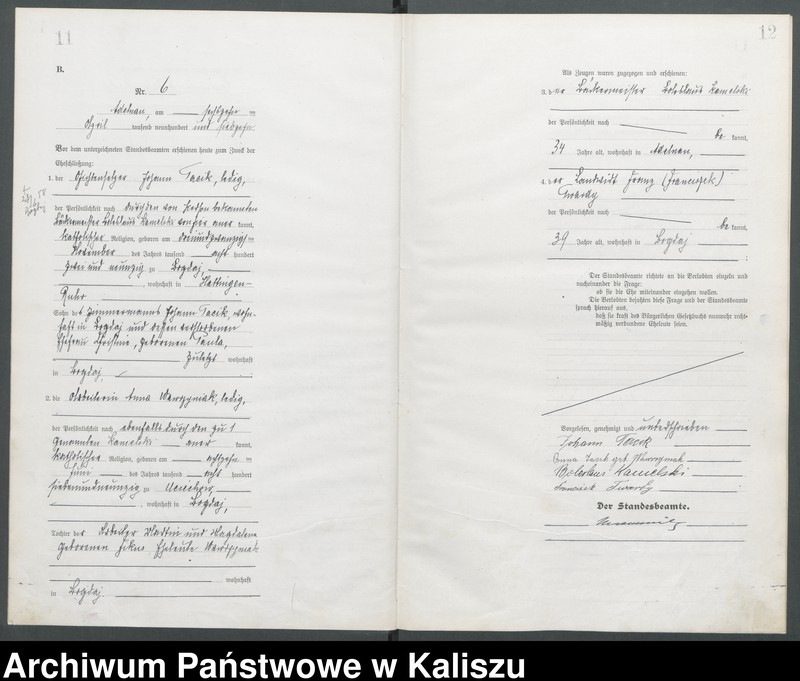 11
B.
Nr. 6
Adelnau, am sechszehn ten
April tausend neunhundert und siebzehn
Vor dem unterzeichneten Standesbeamten erschienen heute zum Zweck der
Eheschließung:
1. der Johann Tacik, ledig,
der Persönlichkeit nach durch den von Person bekannten
Bäckermeister Boleslaus Kamelski von hier aner kannt,
katholischer Religion, geboren am dreiundzwanzigsten
November des Jahres tausend acht hundert
zwei und neunzig zu Bogdaj,
, wohnhaft in Hattingen-
Ruhr
Sohn des Zimmermanns Johann Tacik, wohn-
haft in Bogdaj und dessen verstorbenen
Ehefrau Christine, geborenen Paula,
zuletzt wohnhaft
in Bogdaj,
2. die Arbeiterin Anna Wawrzyniak, ledig,
der Persönlichkeit nach ebenfalls durch den zu 1
genannten Kamelski aner kannt,
katholischer Religion, geboren am achtzehn ten
Juni des Jahres tausend acht hundert
siebenundneunzig zu
, wohnhaft in Bogdaj,
Tochter der Arbeiter Martin und Magdalena
geborenen Eheleute Wawrzyniak
wohnhaft
in Bogdaj.
12
Als Zeugen waren zugezogen und erschienen:
3. der Bäckermeister Boleslaus Kamelski
der Persönlichkeit nach
be kannt,
34 Jahre alt, wohnhaft in Adelnau,
4. der Landwirt Franz (Franciszek)
Twardy
der Persönlichkeit nach
be kannt,
39 Jahre alt, wohnhaft in Bogdaj
Der Standesbeamte richtete an die Verlobten einzeln und
nacheinander die Frage:
ob sie die Ehe miteinander eingehen wollen.
Die Verlobten bejahten diese Frage und der Standesbeamte
sprach hierauf aus,
daß sie kraft des Bürgerlichen Gesetzbuchs nunmehr recht-
mäßig verbundene Eheleute seien.
Vorgelesen, genehmigt und unterschrieben
Johann Tacik
Anna Tacik geb. Wawrzyniak
Boleslaus Kamelski
Franciszek Twardy
Der Standesbeamte.
Archiwum Państwowe w Kaliszu